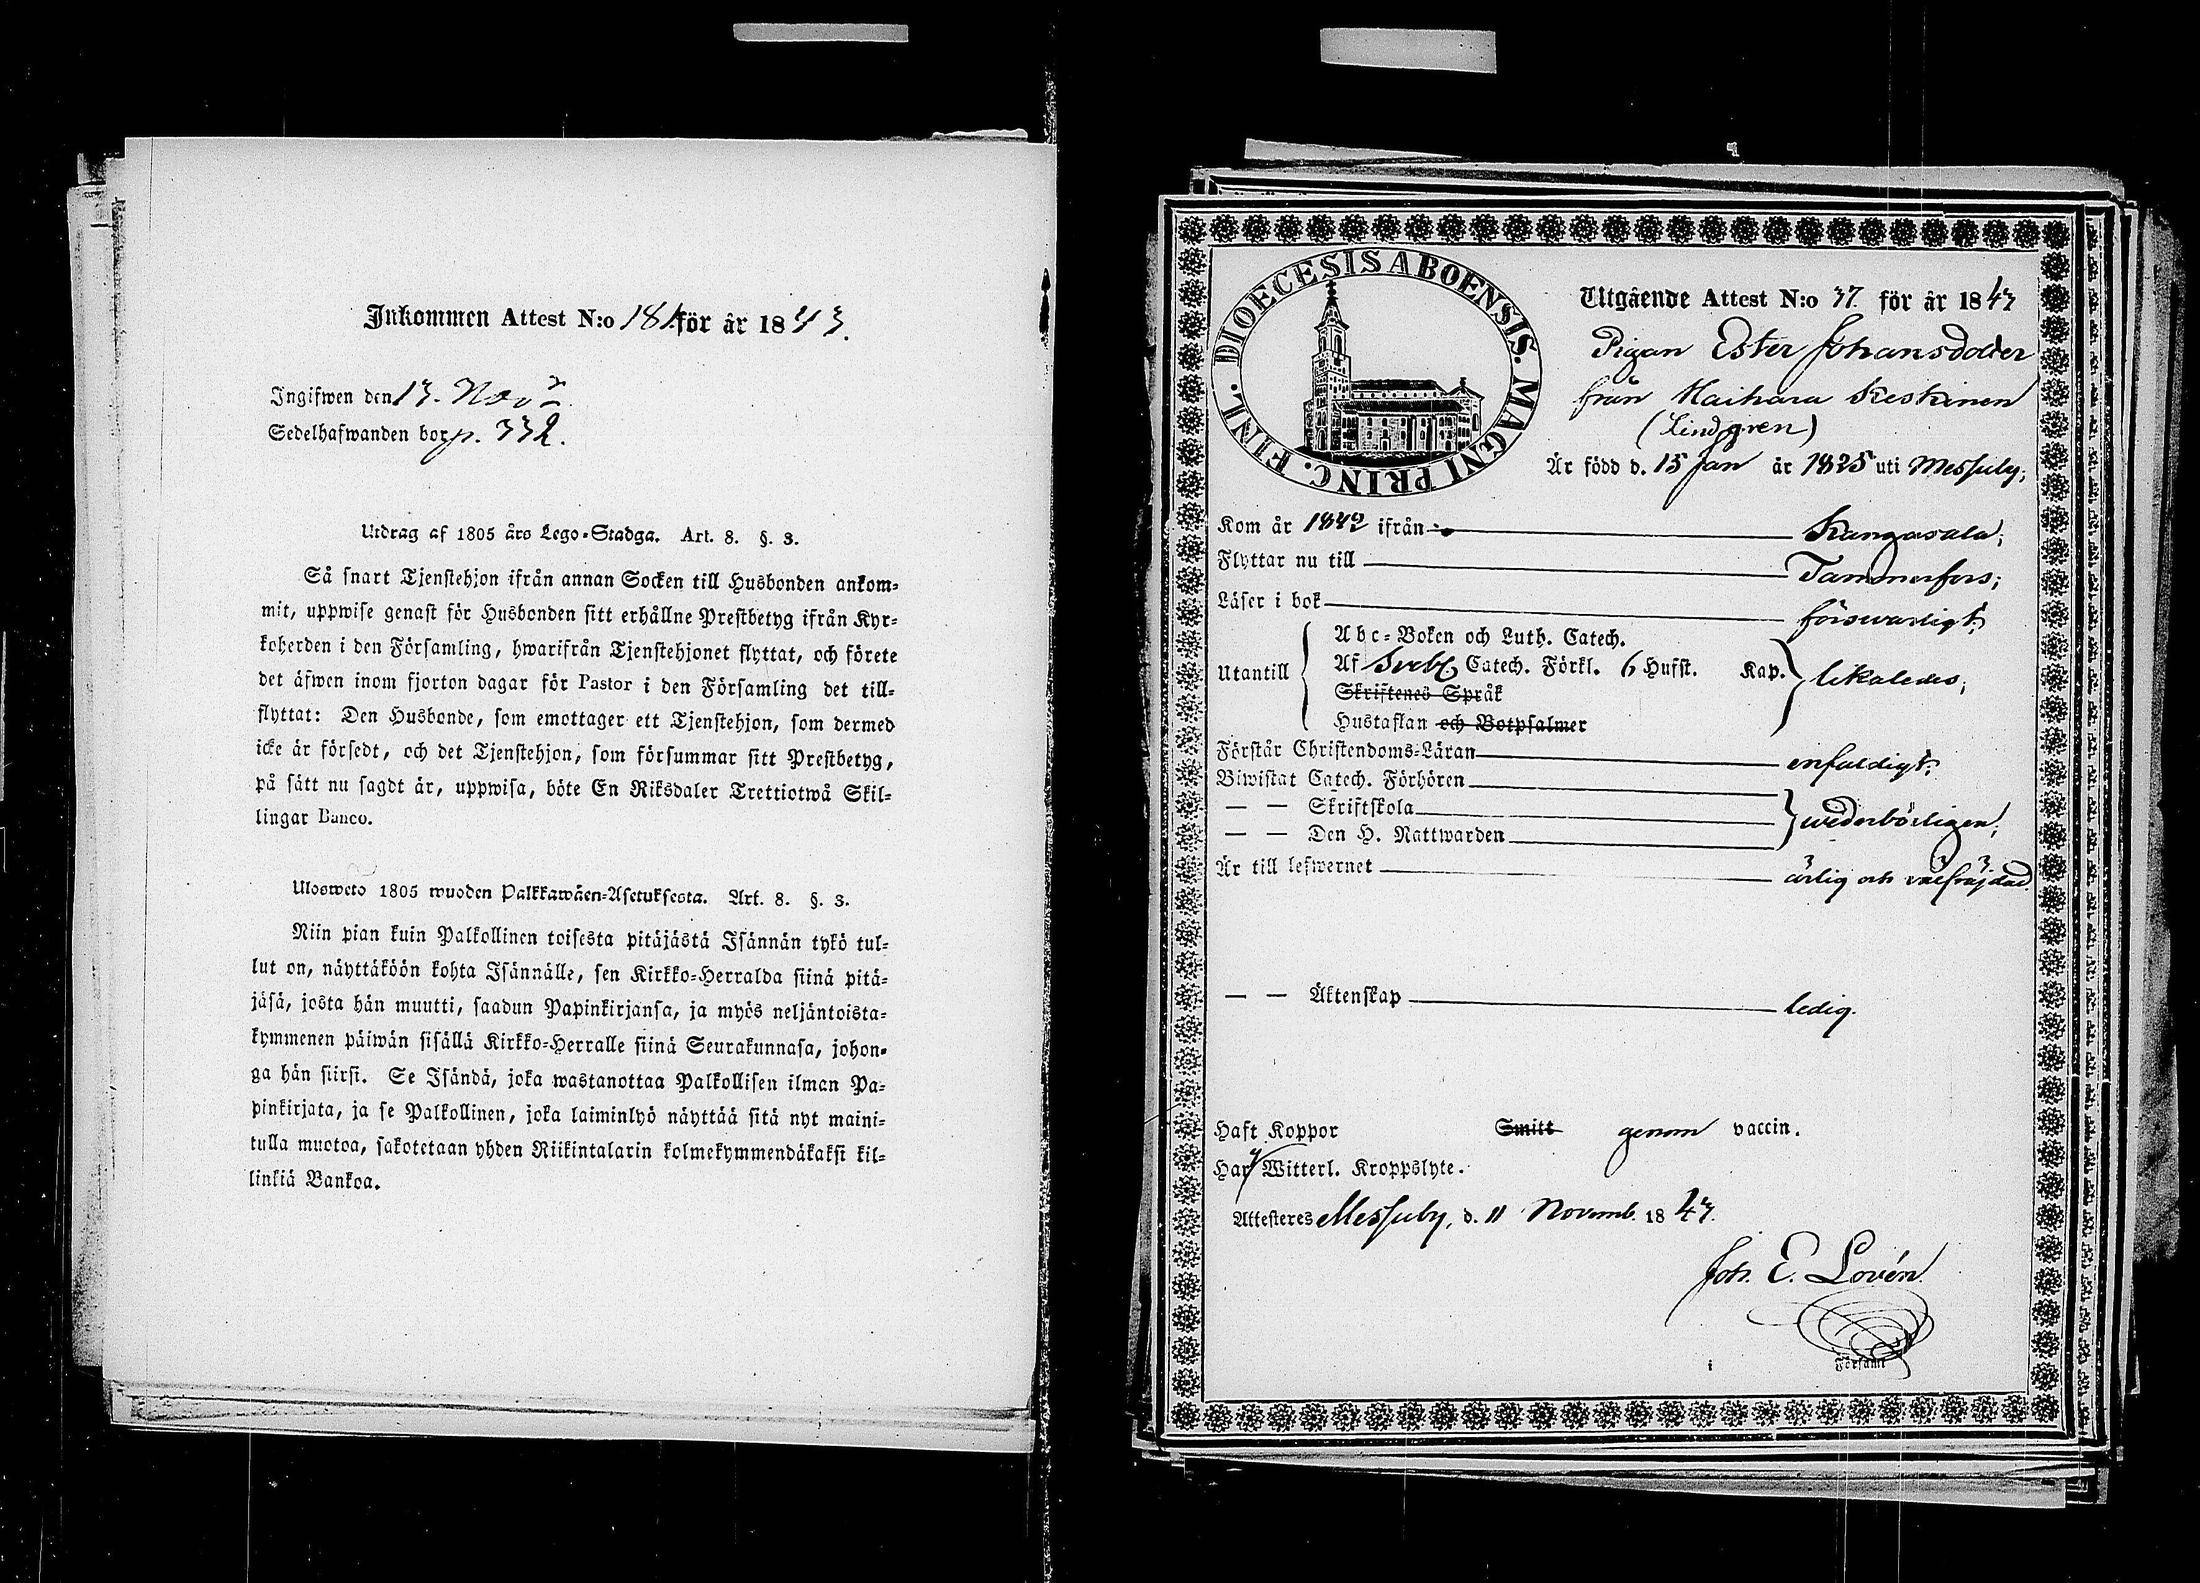 Inkommen Attest N:o 181. för år 1843.
Ingifwen den 13. Nov
Sedelhafwanden bor p. 332.
Utdrag af 1805 års Lego-Stadga. Art. 8. §. 3.
Så snart Tjenstehjon ifrån annan Socken till Husbonden ankom-
mit, uppwise genast för Husbonden sitt erhållne Prestbetyg ifrån Kyr-
koherden i den Församling, hwarifrån Tjenstehjonet flyttat, och förete
det äfwen inom fjorton dagar för Pastor i den Församling det till-
flyttat: Den Husbonde, som emottager ett Tjenstehjon, som dermed
icke är försedt, och det Tjenstehjon, som försummar sitt Prestbetyg,
på sätt nu sagdt är, uppwisa, böte En Riksdaler Trettiotwå Skil-
lingar Banco.
Ulosweto 1805 wuoden Palkkawäen-Asetuksesta. Art. 8. §. 3.
Niin pian kuin Palkollinen toisesta pitäjästä Isännän tykö tul-
lut on, näyttäköön kohta Isännälle, sen Kirkko-Herralda siinä pitä-
jäsä, josta hän muutti, saadun Papinkirjansa, ja myös neljäntoista-
kymmenen päiwän sisällä Kirkko-Herralle siinä Seurakunnasa, johon-
ga hän siirsi. Se Isändä, joka wastanottaa Palkollisen ilman Pa-
pinkirjata, ja se Palkollinen, joka laiminlyö näyttää sitä nyt maini-
tulla muotoa, sakotetaan yhden Riikintalarin kolmekymmendäkaksi kil-
linkiä Bankoa.
DIOECESIS ABOENSIS. MAGNI PRINC. FINL.
Utgående Attest N:o 37. för år 1843
Pigan Ester Johansdotter
från Haihara Keskinen
(Lindgren)
Är född d. 15 Jan år 1825 uti Messuby;
Kom år 1842 ifrån Kangasala;
Flyttar nu till Tammerfors;
Läser i bok försvarligt;
Utantill Abc-Boken och Luth. Catech.
Af Svebl. Catech. Förkl. 6 Hufst. Kap. likaledes;
Skriftenes Språk
Hustaflan och Botpsalmer
Förstår Christendoms-Läran enfaldigt;
Biwistat Catech. Förhören
— — Skriftskola wederbörligen;
— — Den H. Nattwarden
Är till lefwernet ärlig och välfräjdad.
— — Äktenskap ledig.
Haft Koppor Smitt genom vaccin.
Har Witterl. Kroppslyte.
Attesteres Messuby, d. 11 Novemb. 1843.
Joh. E. Lovén.
i Församl